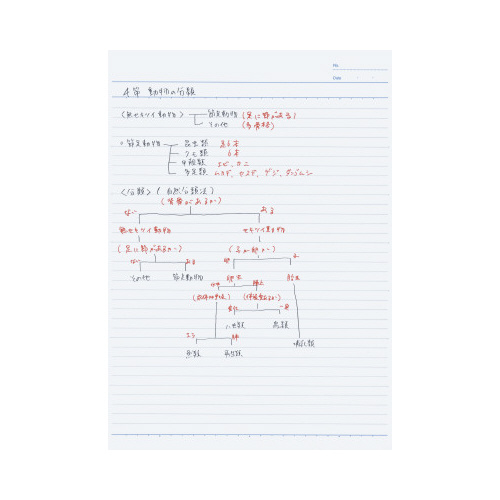 No.
Date
4章 動物の分類
〈無セキツイ動物〉 節足動物 (足に節がある)
その他 (外骨格)
。節足動物 昆虫類 足6本
クモ類 8本
甲殻類 エビ、カニ
多足類 ムカデ、ヤスデ、ゲジ、ダンゴムシ
〈分類〉(自然分類法)
(背骨があるか)
ない ある
無セキツイ動物 セキツイ動物
(足に節があるか) (子か卵か)
ない ある 卵 子
その他 節足動物 卵生 胎生
水中 陸上
変化 一定
ハ虫類 鳥類
ホ乳類
エラ 肺
魚類 両生類